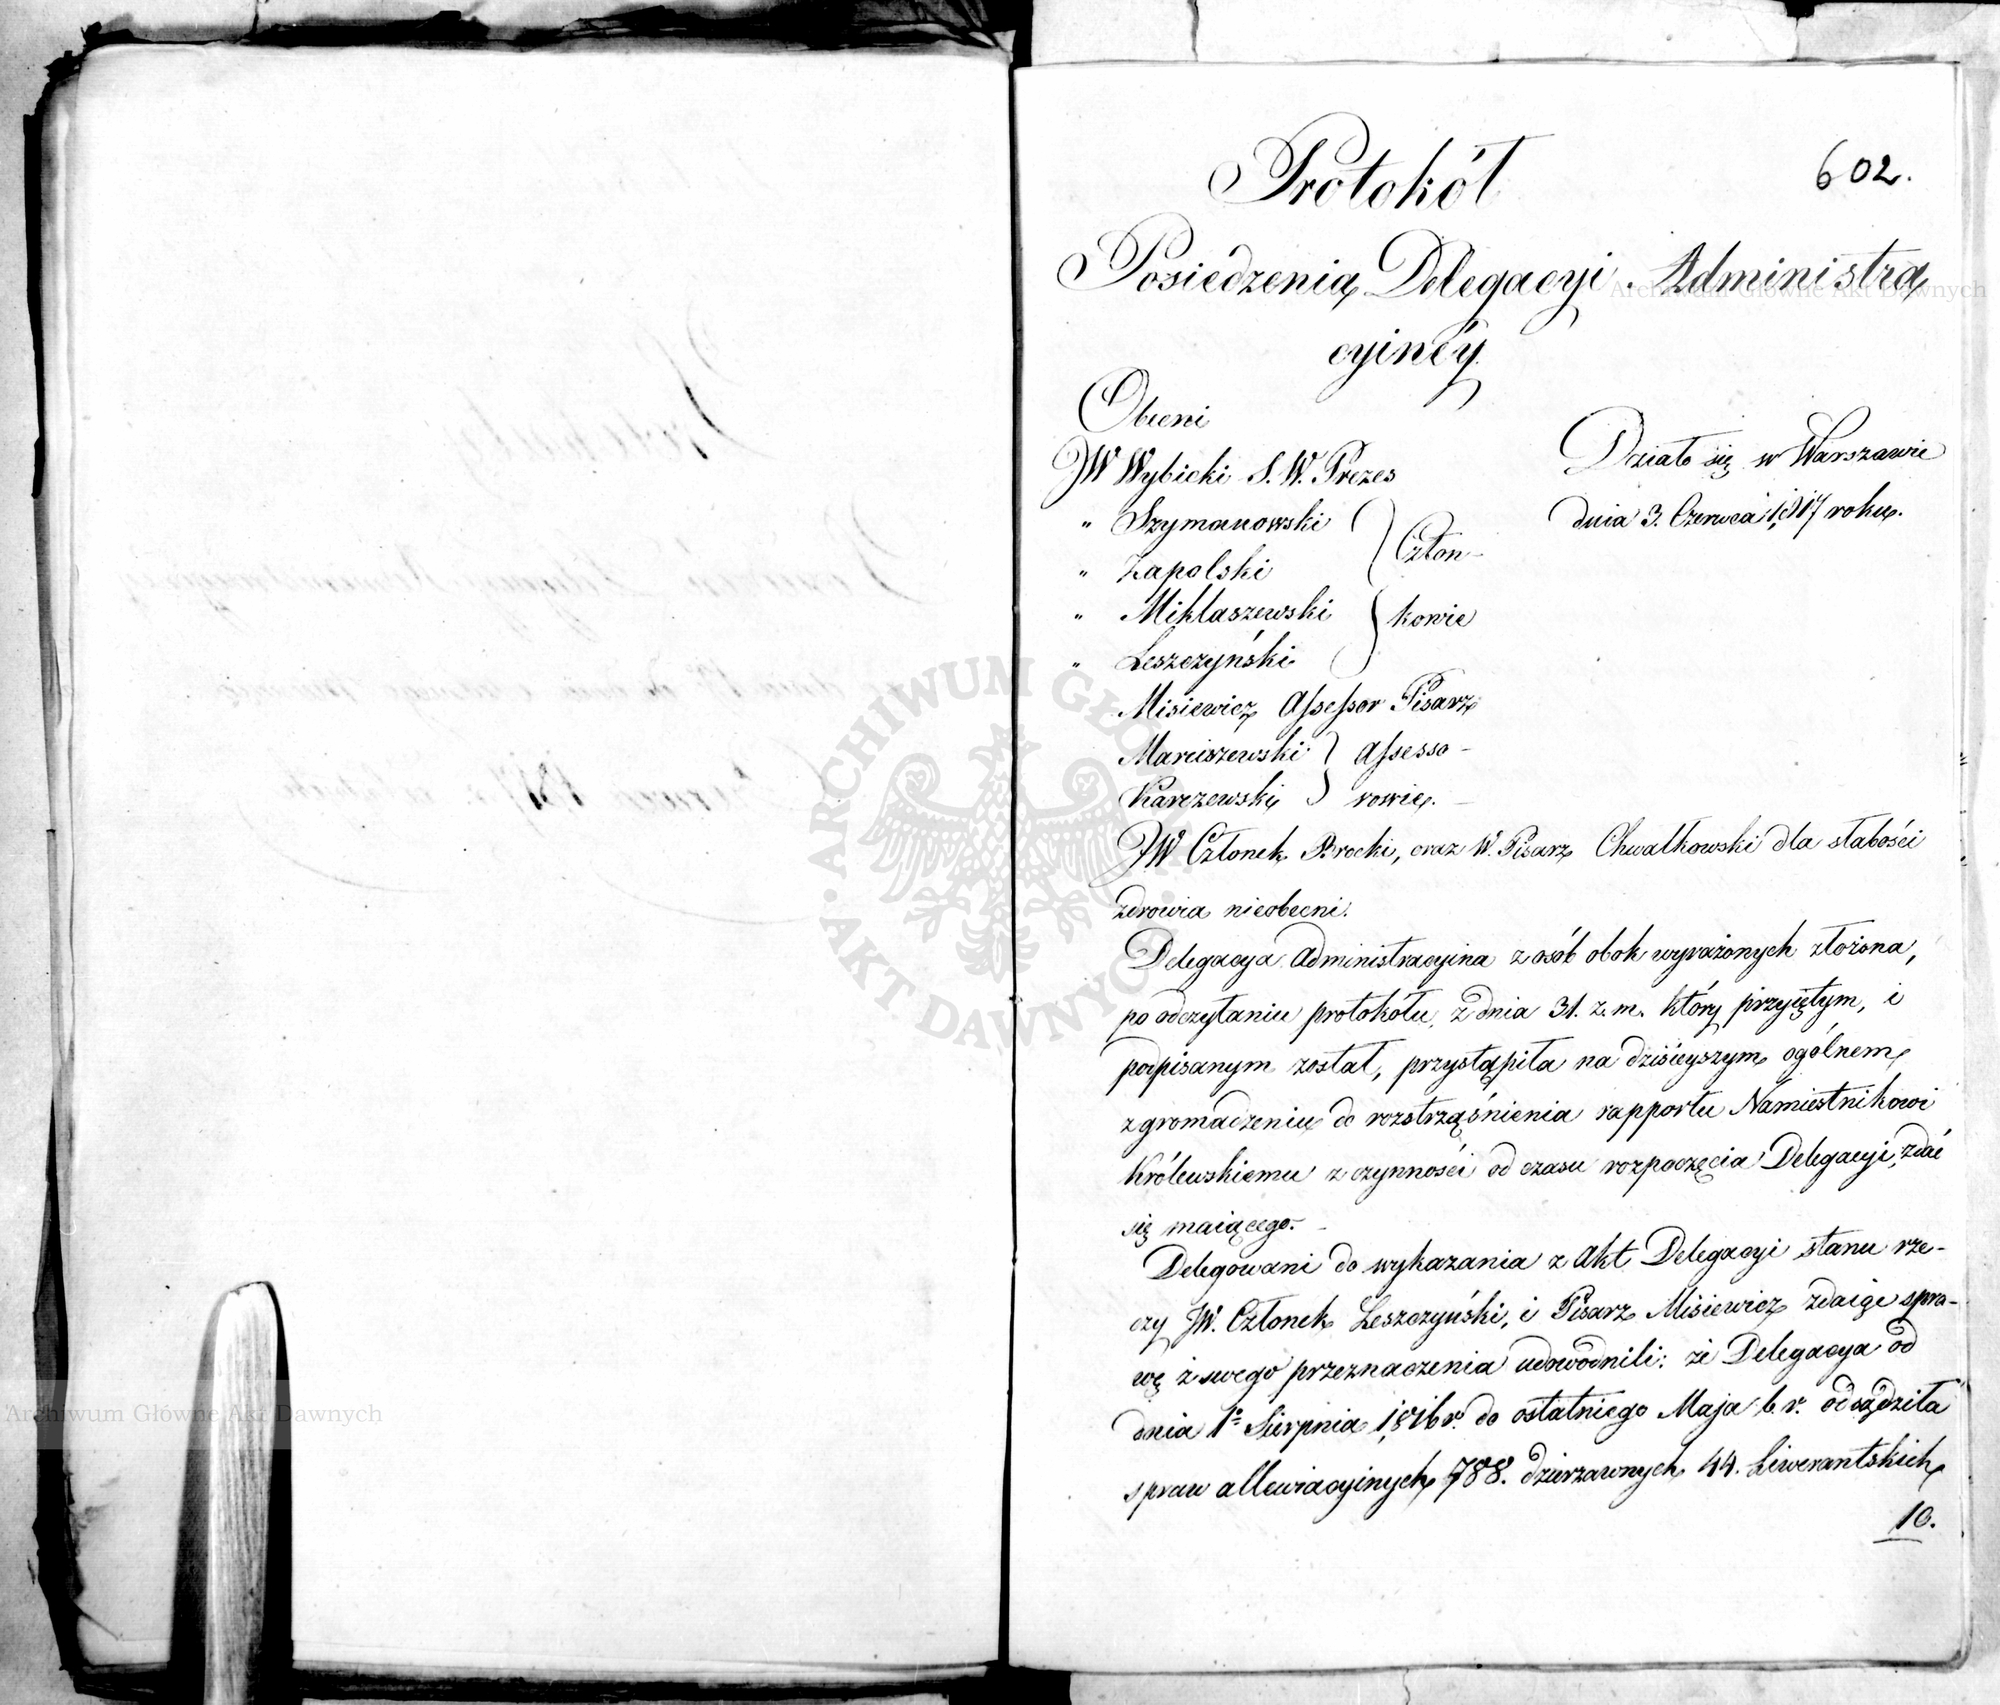 602.
Protokół
Posiedzenia Delegacyi Administra
cyinéy
Obecni
JW Wybicki S. W. Prezes
Działo się w Warszawie
dnia 3. Czerwca 1817 roku.
" Szymanowski
" Zapolski
Człon-
" Miklaszewski
kowie
" Leszczyński
Misiewicz Assessor Pisarz
Marciszewski Assesso-
Karczewski rowie.
JW Członek Brocki, oraz W. Pisarz Chwalkowski dla słabości
zdrowia nieobecni.
Delegacya Administracyina z osób obok wyrażonych złożona,
po odczytaniu protokółu z dnia 31. z. m. który przyiętym, i
podpisanym został, przystąpiła na dzisieyszym ogólnem
zgromadzeniu do rozstrząśnienia rapportu Namiestnikowi
Królewskiemu z czynności od czasu rozpoczęcia Delegacyi, zdać
się maiącego.
Delegowani do wykazania z Akt Delegacyi stanu rze-
czy JW. Członek Leszczyński, i Pisarz Misiewicz zdaiąc spra-
wę z swego przeznaczenia udowodnili: że Delegacya od
dnia 1o Sierpnia 1816 r. do ostatniego Maja b. r. odsądziła
spraw allewiacyinych 788. dzierzawnych 44. Liwerantskich
10.
Archiwum Główne Akt Dawnych
Archiwum Główne Akt Dawnych
ARCHIWUM GŁÓWNE AKT DAWNYCH